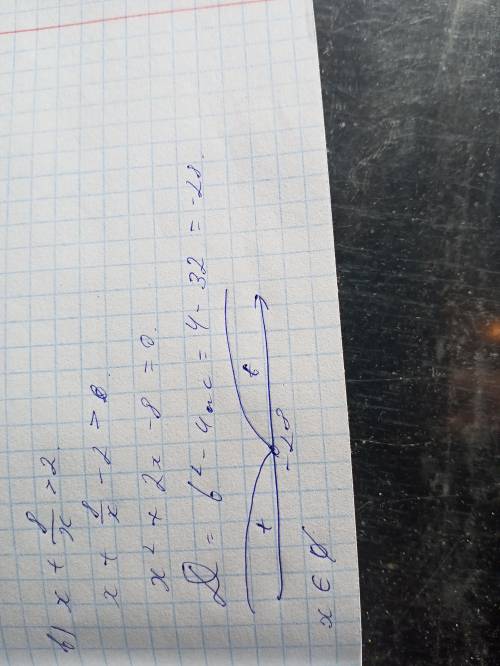 в) x + 8/x > 2.
x + 8/x - 2 > 0.
x² + 2x - 8 = 0.
D = b² - 4ac = 4 - 32 = -28.
+
-28
x ∈ ∅